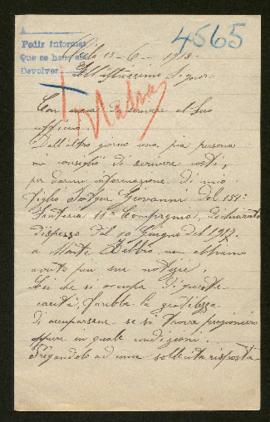 4565
A
Pedir informes
Que se han
Devolver
13-6-1918
Illustrissimo Signor
Con scrivere al Suo
officio
Dall'altro giorno una pia persona
mi consigliò di scrivere costì,
per darmi informazione di mio
figlio Giovanni del 151º
Fanteria 11ª Compagnia, dichiarato
disperso dal 10 Giugno del 1917
a Monte Zebio, non abbiamo
avuto più sue notizie
Lei che si occupa di queste
carità, farebbe la gentilezza
di occuparsene se si trova prigioniero
oppure in quale condizioni.
Pregandolo ad una sollecita risposta